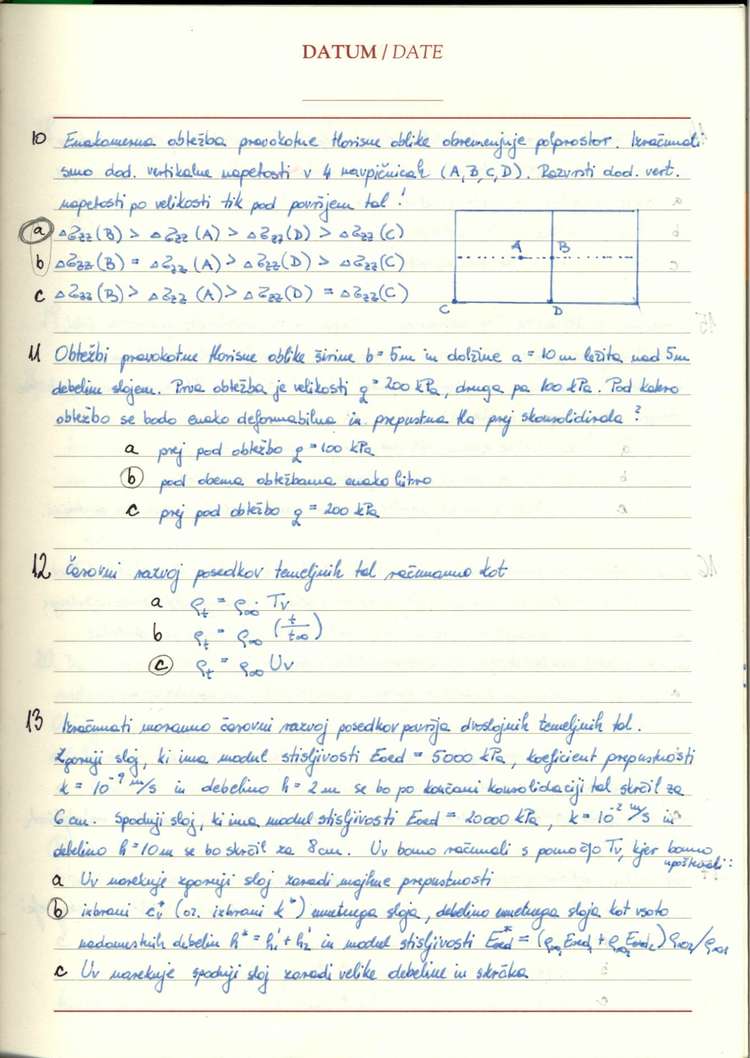 DATUM / DATE
10 Enakomerna obtežba pravokotne tlorisne oblike obremenjuje polprostor. Izračunali
smo dod. vertikalne napetosti v 4 navpičnicah (A, B, C, D). Razvrsti dod. vert.
napetosti po velikosti tik pod površjem tal!
a Δσzz(B) > Δσzz(A) > Δσzz(D) > Δσzz(C)
b Δσzz(B) = Δσzz(A) > Δσzz(D) > Δσzz(C)
c Δσzz(B) > Δσzz(A) > Δσzz(D) = Δσzz(C)
A B
C D
11 Obtežbi pravokotne tlorisne oblike širine b = 5m in dolžine a = 10m ležita nad 5m
debelim slojem. Prva obtežba je velikosti q = 200 kPa, druga pa 100 kPa. Pod katero
obtežbo se bodo enako deformabilna in prepustna tla prej skonsolidirala?
a prej pod obtežbo q = 100 kPa
b pod obema obtežbama enako hitro
c prej pod obtežbo q = 200 kPa
12 Časovni razvoj posedkov temeljnih tal računamo kot
a ρt = ρ∞ · Tv
b ρt = ρ∞ (t/t∞)
c ρt = ρ∞ Uv
13 Izračunati moramo časovni razvoj posedkov površja dvoslojnih temeljnih tal.
Zgornji sloj, ki ima modul stisljivosti Eoed = 5000 kPa, koeficient prepustnosti
k = 10⁻⁹ m/s in debelino h = 2m se bo po končani konsolidaciji tal skrčil za
6cm. Spodnji sloj, ki ima modul stisljivosti Eoed = 20000 kPa, k = 10⁻² m/s in
debelino h = 10m se bo skrčil za 8cm. Uv bomo računali s pomočjo Tv, kjer bomo
upoštevali:
a Uv narekuje zgornji sloj zaradi majhne prepustnosti
b izbrani cv* (oz. izbrani k*) umetnega sloja, debelino umetnega sloja kot vsoto
nadomestnih debelin h* = h₁' + h₂' in modul stisljivosti Eoed* =
c Uv narekuje spodnji sloj zaradi velike debeline in skrčka